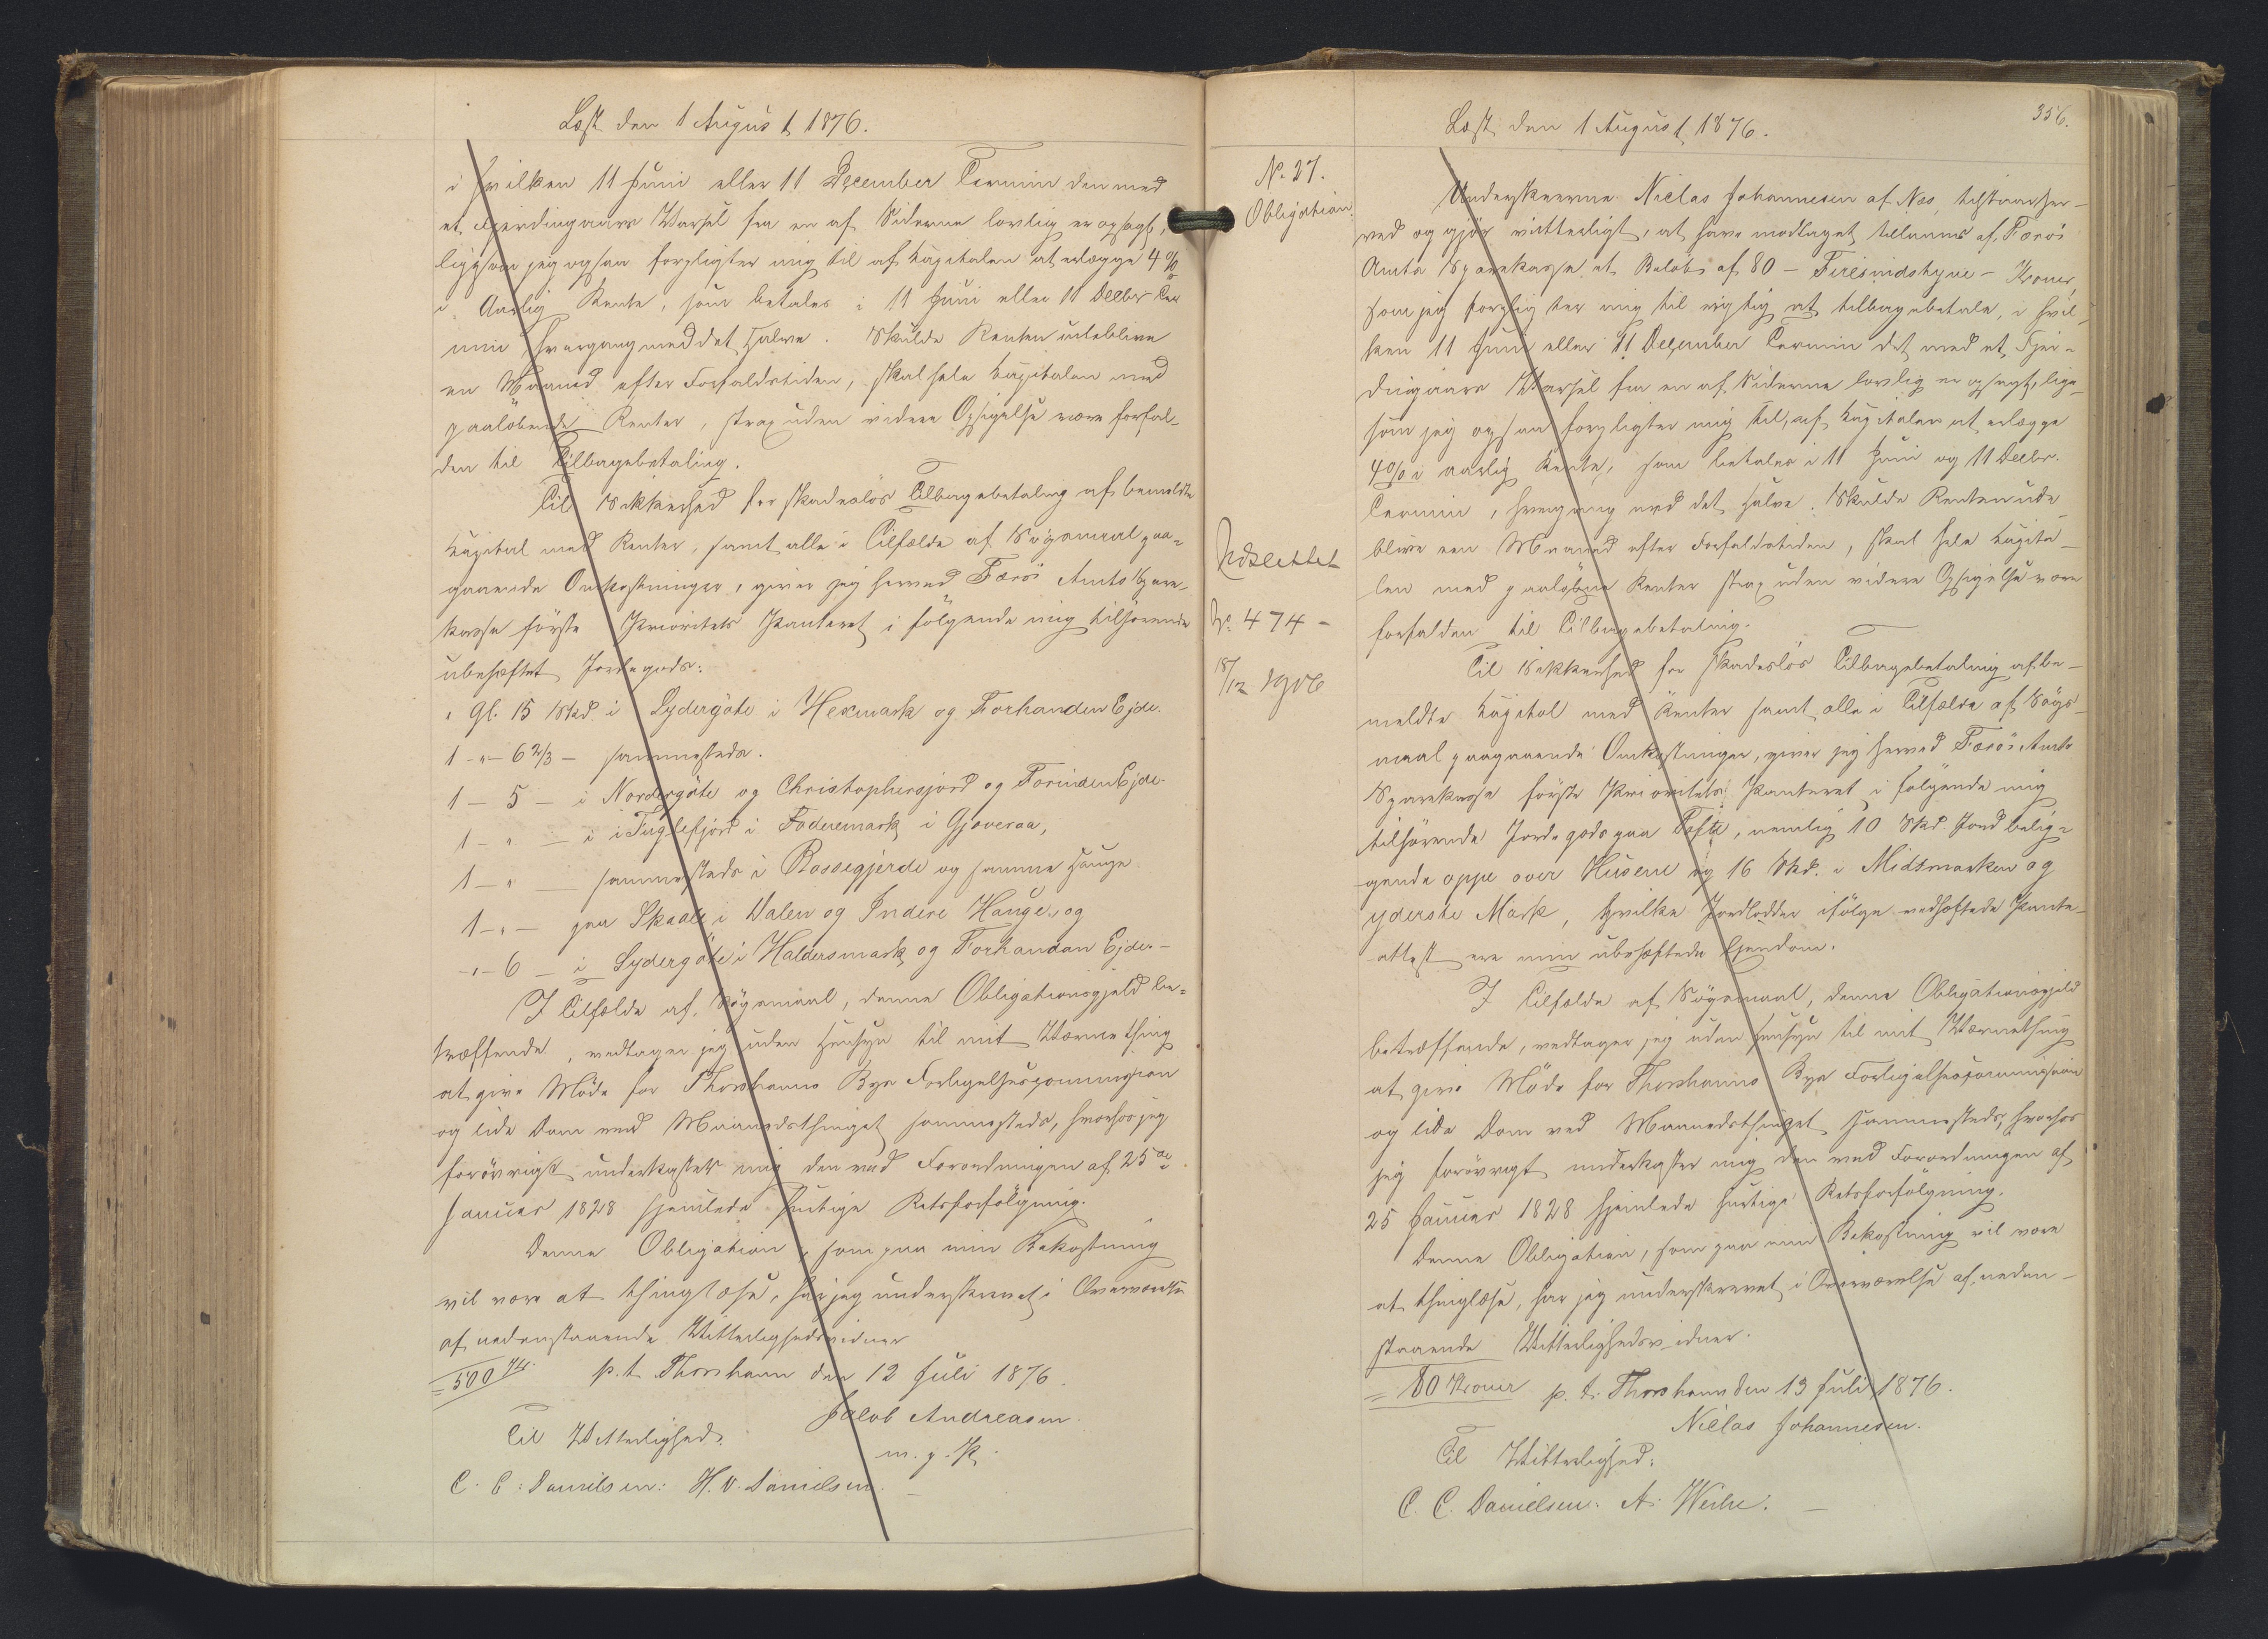 Læst den 1 August 1876.
i hvilken 11 Juni eller 11 December Termin den med
et Fjerdingaars Varsel fra en af Siderne lovlig er opsagt,
ligesom jeg ogsaa forpligter mig til af Kapitalen at erlægge 4 %
i Aarlig Rente, som betales i 11 Juni eller 11 Decbr Ter
min, hvergang med det Halve. Skulde Renten udeblive
en Maaned efter Forfaldstiden, skal hele Kapitalen med
paaløbende Renter, strax uden videre Opsigelse være forfal-
den til Tilbagebetaling.
Til Sikkerhed for skadesløs Tilbagebetaling af bemeldte
Kapital med Renter, samt alle i Tilfælde af Søgsmaal paa-
gaaende Omkostninger, giver jeg herved Færø Amts Spare-
kasse første Prioritets Panteret i følgende mig tilhørende
ubehæftet Jordegods:
" Gl. 15 Skd i Sydergøte i Hexmark og Forhanden Ejde.
1 - " - 6 2/3 - sammesteds.
1 - 5 - i Nordergøte og Christophersjord og ForindenEjde.
1 - " - i Fuglefjord i Foderemark i Gjoveraa,
1 - " - sammesteds i Rossegjerde og samme Hauge
1 - " - paa Skaale i Dalen og Indere Hauge, og
- " - 6 - i Sydergøte i Haldersmark og Forhandan Ejde. -
I Tilfælde af Søgsmaal, denne Obligationsgjeld be-
træffende, vedtager jeg uden Hensyn til mit Værnething
at give Møde for Thorshavns Byes Forligelsescommission
og lide Dom ved Maanedsthinget sammesteds, hvorhos jeg
forøvrigt underkaster mig den ved Forordningen af 25de
Januar 1828 hjemlede hurtige Retsforfølgning.
Denne Obligation, som paa min Bekostning
vil være at thinglæse, har jeg underskrevet i Overværelse
af nedenstaaende Vitterlighedsvidner
= 500 Kr. p. t. Thorshavn den 12 Juli 1876.
Jacob Andreasen.
Til Vitterlighed.
m. p. P.
C. C. Danielsen. H. V. Danielsen. -
356.
Læst den 1 August 1876.
No 27.
Obligation.
Udslettet
No. 474 -
18/12 1906
Underskrevne Niclas Johannesen af Næs, tilstaar her-
ved og gjør vitterligt, at have modtaget tillaans af Færø
Amts Sparekasse et Beløb af 80 - Firesindstyve - Kroner,
som jeg forpligter mig til rigtig at tilbagebetale, i hvil-
ken 11 Juni eller 11 December Termin det med et Fjer-
dingaars Varsel fra en af Siderne lovlig er opsagt, lige-
som jeg ogsaa forpligter mig til, af Kapitalen at erlægge
4 % i aarlig Rente, som betales i 11 Juni og 11 Decbr.
Termin, hvergang med det Halve. Skulde Renten ude-
blive een Maaned efter Forfaldstiden, skal hele Kapita-
len med paaløbne Renter strax uden videre Opsigelse være
forfalden til Tilbagebetaling.
Til Sikkerhed for skadesløs Tilbagebetaling af be-
meldte Kapital med Renter samt alle i Tilfælde af Søgs-
maal paagaaende Omkostninger, giver jeg herved Færø Amts
Sparekasse første Prioritets Panteret i følgende mig
tilhørende Jordegods paa Tofte, nemlig 10 Skd. Jord belig-
gende oppe over Husene og 16 Skd. i Midtmarken og
yderste Mark, hvilke Jordlodder ifølge vedhæftede Pante-
attest ere min ubehæftede Ejendom.
I Tilfælde af Søgsmaal, denne Obligationsgjeld
betræffende, vedtager jeg uden Hensyn til mit Værnething
at give Møde for Thorshavns Byes Forligelsescommission
og lide Dom ved Maanedsthinget sammesteds, hvorhos
jeg forøvrigt underkaster mig den ved Forordningen af
25 Januar 1828 hjemlede hurtige Retsforfølgning.
Denne Obligation, som paa min Bekostning vil være
at thinglæse, har jeg underskrevet i Overværelse af neden-
staaende Vitterlighedsvidner.
= 80 Kroner p. t. Thorshavn den 13 Juli 1876.
Niclas Johannesen.
Til Vitterlighed:
C. C. Danielsen. A. Weihe. -